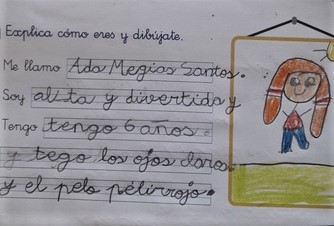 Explica cómo eres y dibújate.
Me llamo Ada Megias Santos.
Soy alta y divertida y
Tengo tengo 6 años
y tego los ojos claros
y el pelo pélirrojo.